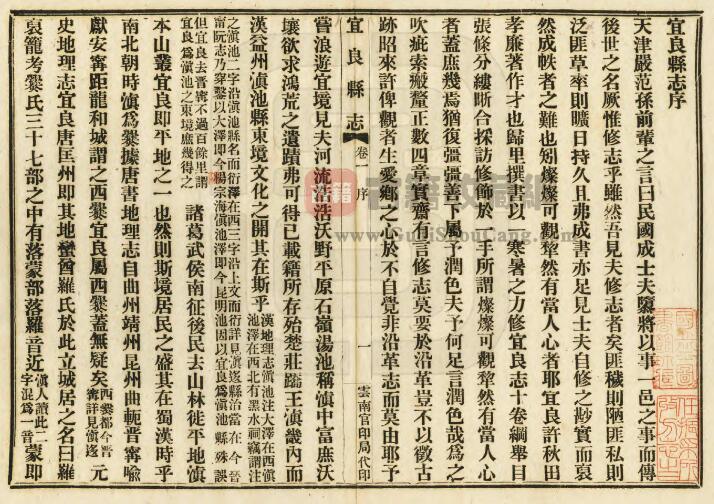 宜良縣志序
天津嚴范孫前輩之言曰民國成士夫隳將以事一邑之事而傳
後世之名厥惟修志乎雖然吾見夫修志者矣匪穢則陋匪私則
泛匪草率則曠日持久且弗成書亦足見士夫自修之尠實而裒
然成帙者之難也矧燦燦可觀犂然有當人人心者耶宜良許秋田
孝廉著作才也歸里撰書以一寒暑之力修宜良志十卷綱舉目
張條分縷晰合採訪修飾於一手所謂燦燦可觀犂然有當人心
者蓋庶幾焉猶復彊彊善下屬予潤色夫予何足言潤色哉爲之
吹疵索瘢釐正數四章實齋有言修志莫要於沿革豈不以徵古
跡昭來許俾觀者生愛鄉之心於不自覺非沿革志而莫由耶予
宜良縣志 卷一 序 一 雲南官印局代印
嘗浪遊宜境見夫河流浩浩沃野平原石嶺湯池稱滇中富庶沃
壤欲求鴻荒之遺蹟弗可得已載籍所存殆楚莊蹻王滇畿內而
漢益州滇池縣東境文化之開其在斯乎
漢地理志滇池注大澤在西滇
池澤在西北有黑水祠竊謂注
之滇池二字沿滇池縣名而衍澤在西三字沿上文而衍詳見滇遂縣治當在今晉
甯阮志乃穿鑿以大澤即今楊宗海滇池澤即今昆明池因以宜良爲滇池縣殊誤
但宜良去晉甯不過百餘里謂
宜良爲滇池之東境庶幾得之
諸葛武侯南征後民去山林徙平地滇
本山叢宜良即平地之一也然則斯境居民之盛其在蜀漢時乎
南北朝時滇爲爨據唐書地理志自曲州靖州昆州曲軛晉甯喻
獻安甯距龍和城謂之西爨宜良屬西爨蓋無疑矣
西爨都今晉
甯詳見滇遂
元
史地理志宜良唐匡州即其地蠻酋羅氏於此立城居之名曰羅
裒籠考爨氏三十七部之中有落蒙部落羅音近
滇人讀此二
字混爲一音
蒙即